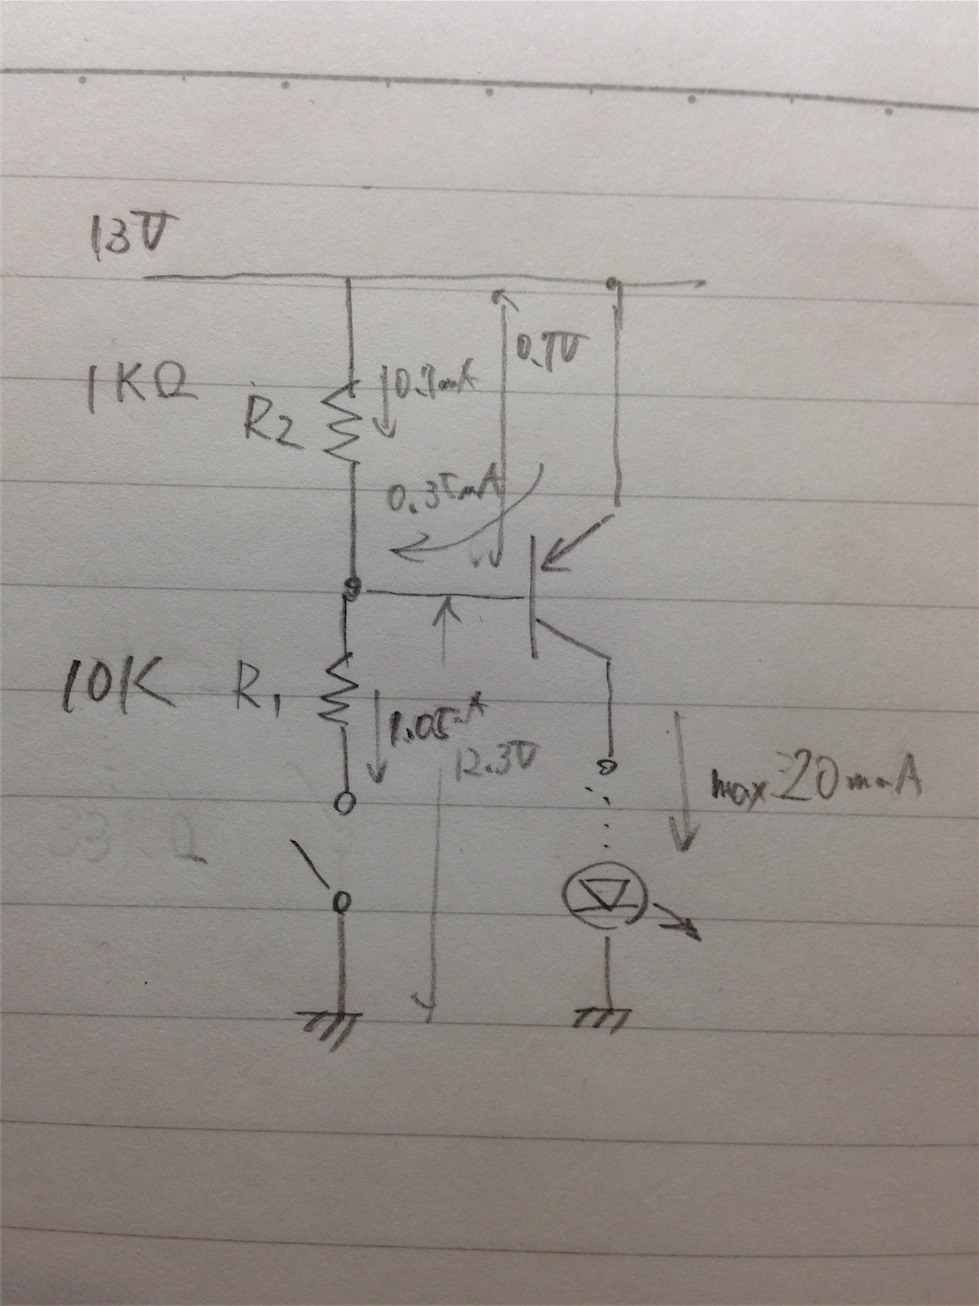 13V
0.7V
1KΩ
R2
0.7mA
0.35mA
10K
R1
1.05mA
12.3V
max 20mA
33KΩ